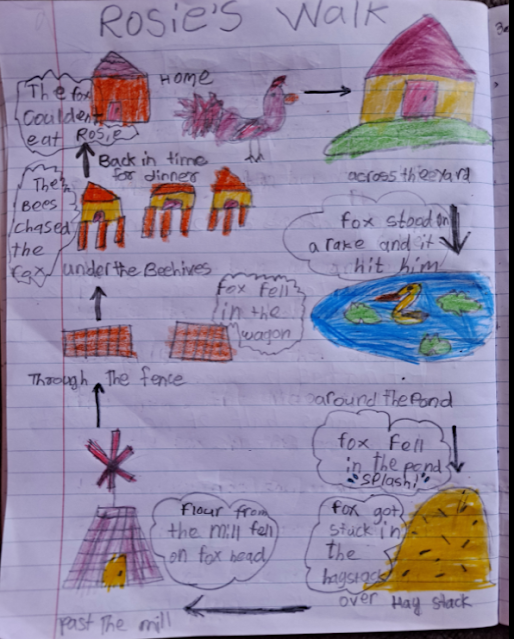 ROSIE'S WALK
HOME
The fox
Coulden
eat Rosie
Back in time
for dinner
across theeyard
The
Bees
chased
the
fox
under the Beehives
fox stood on
a rake and it
hit him
fox fell
in the
wagon
Through the fence
around the Pond
fox Fell
in the pond
"splash!"
Flour from
the mill fell
on fox head
fox got
stuck in
the
hagstack
over Hag stack
past the mill